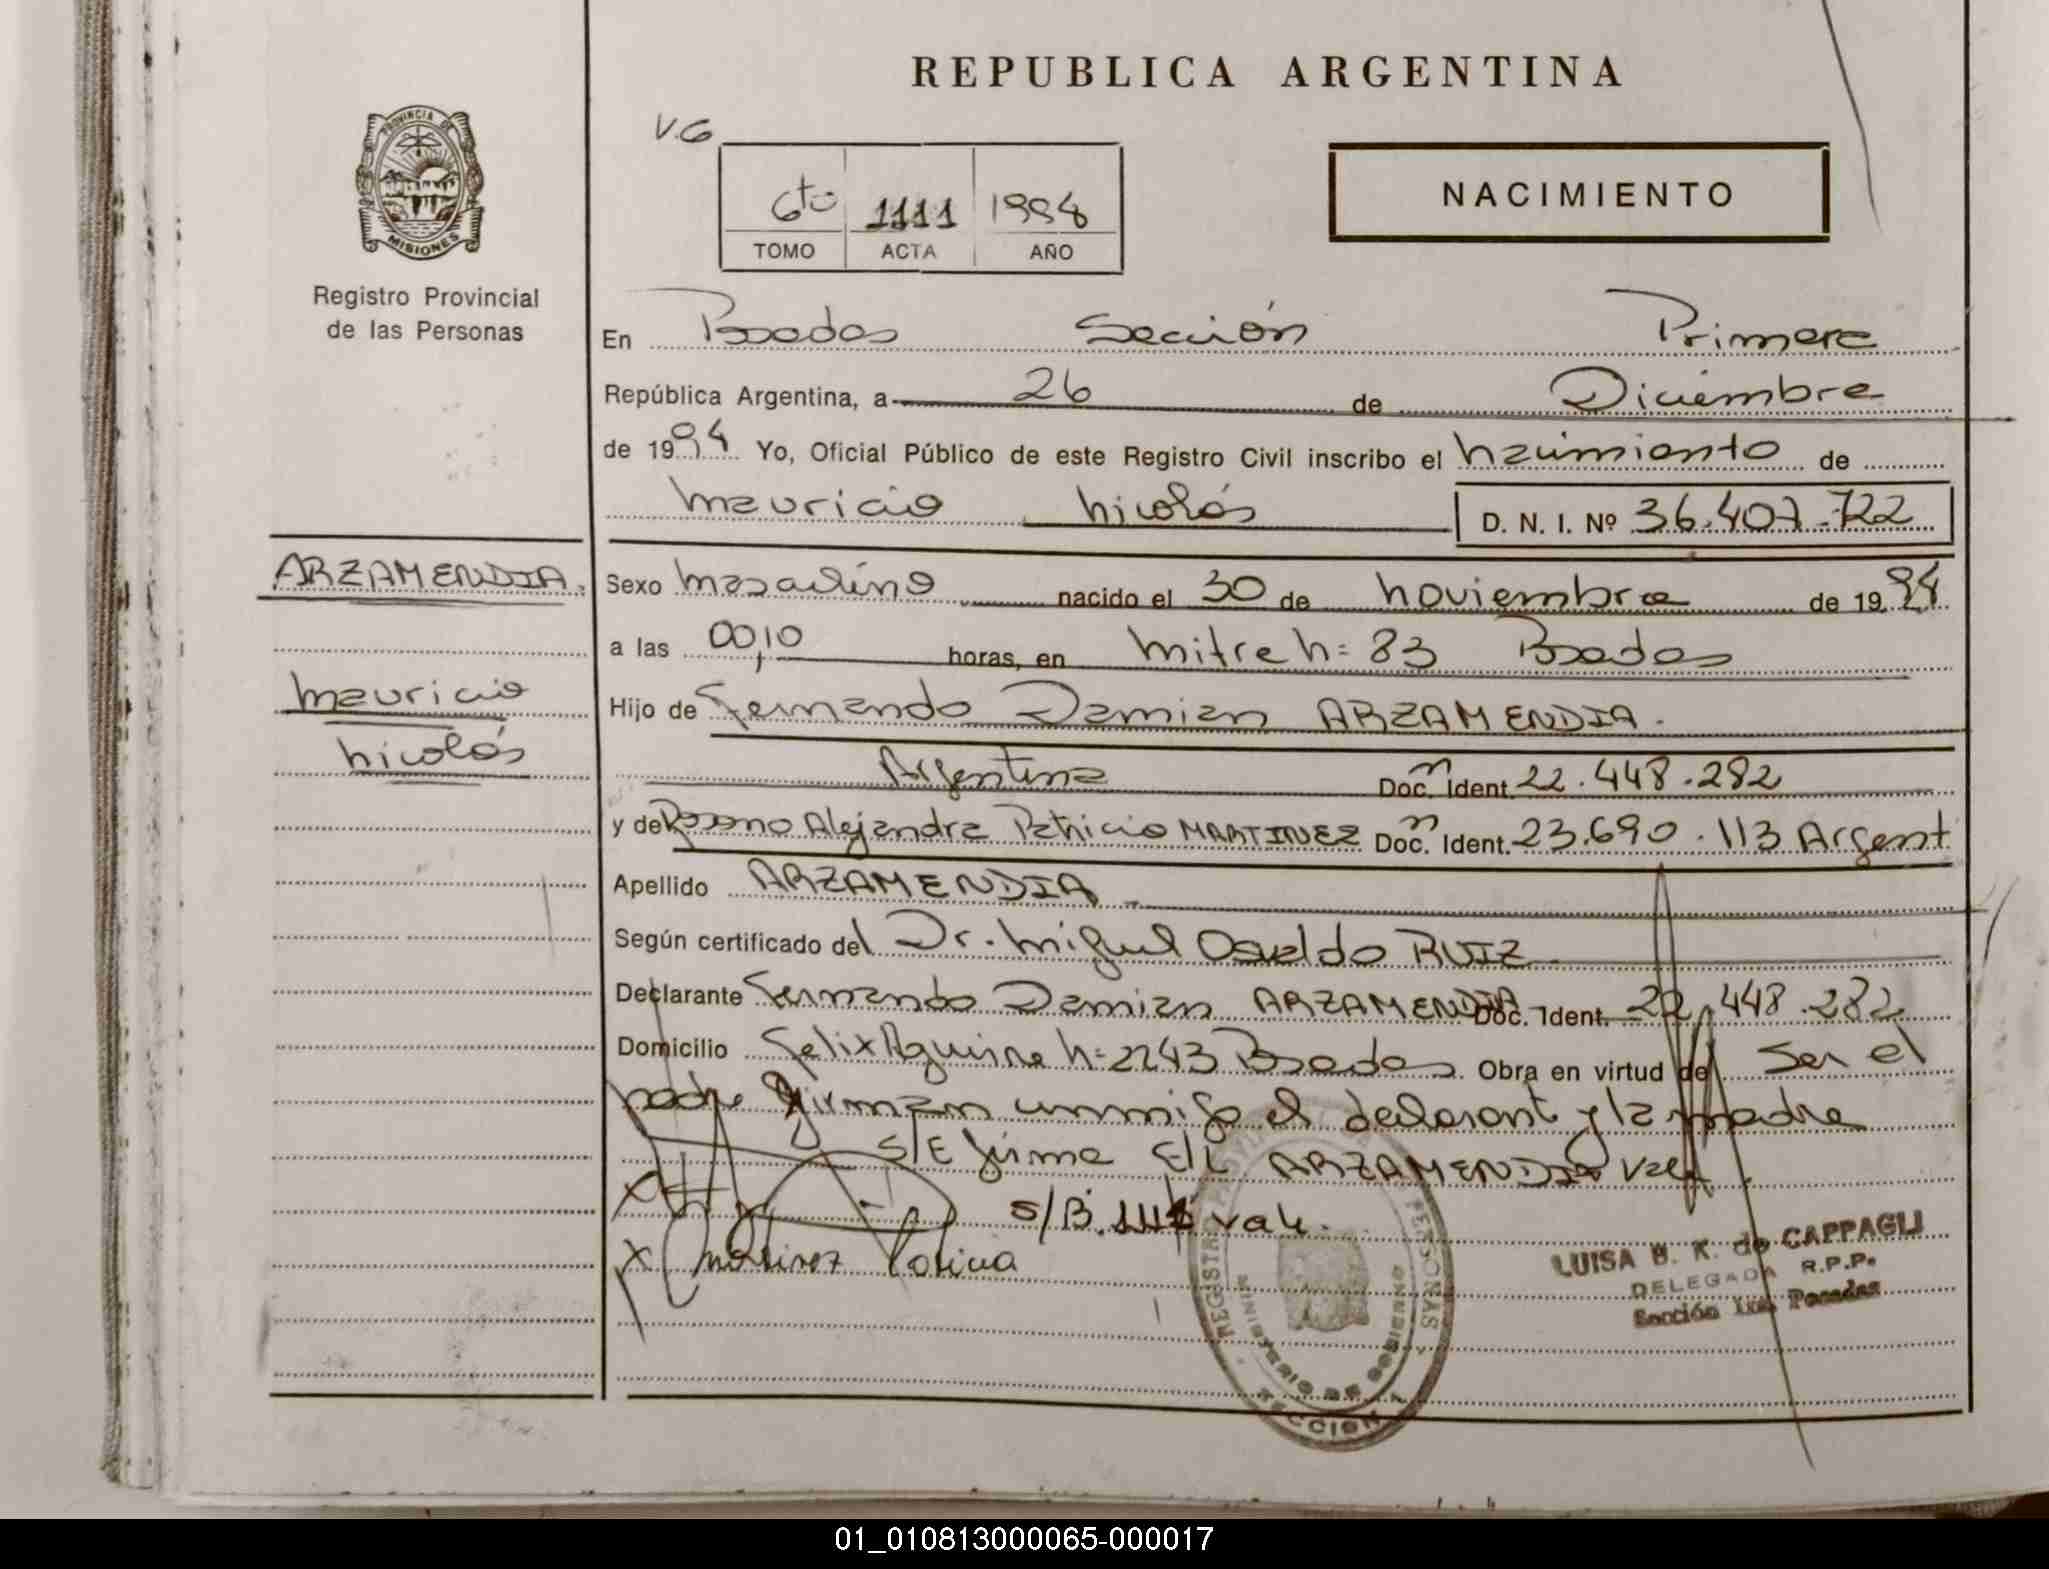 REPUBLICA ARGENTINA
PROVINCIA DE
MISIONES
Registro Provincial
de las Personas
V.G
6to 1111 1994
TOMO ACTA AÑO
NACIMIENTO
En Posadas Sección Primera
República Argentina, a 26 de Diciembre
de 1994 Yo, Oficial Público de este Registro Civil inscribo el nacimiento de
Mauricio Nicolás D. N. I. Nº 36.407.722
ARZAMENDIA.
Mauricio
Nicolás
Sexo Masculino nacido el 30 de Noviembre de 1994
a las 00,10 horas, en Mitre N= 83 Posadas
Hijo de Fernando Damian ARZAMENDIA.
Argentina Doc. Ident. 22.448.282
y de Alejandra Patricia MARTINEZ Doc. Ident. 23.690.113 Argent
Apellido ARZAMENDIA
Según certificado del Dr. Miguel Osvaldo RUIZ
Declarante Fernando Damian ARZAMENDIA Doc. Ident. 22.448.282
Domicilio Felix Aguirre N= 2243 Posadas. Obra en virtud de Ser el
padre firman conmigo el declarant y la madre
S/E firma E/L ARZAMENDIA Vale
S/B. 1111 vale.
X
X Martinez
LUISA B. K. de CAPPAGLI
DELEGADA R.P.P.
Sección 1ra. Posadas
MINISTERIO DE GOBIERNO
SECCION 1
01_010813000065-000017